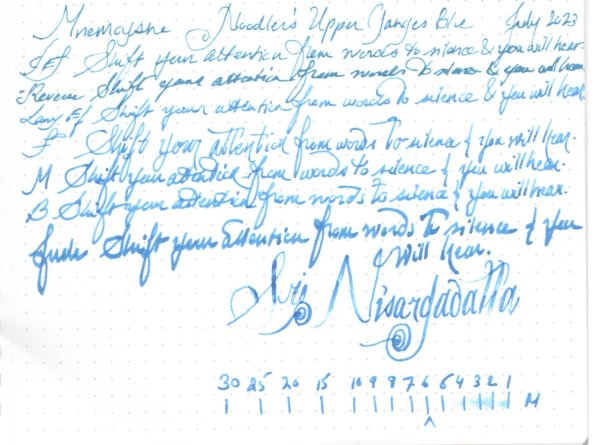 Mnemosyne Noodler's Upper Ganges Blue July 2023
EF Shift your attention from words to silence & you will hear.
Reverse Shift your attention from words to silence & you will hear
Lamy EF Shift your attention from words to silence & you will hear
F Shift your attention from words to silence & you will hear.
M Shift your attention from words to silence & you will hear.
B Shift your attention from words to silence & you will hear.
Fude Shift your attention from words to silence & you
will hear.
Sri Nisargadatta
30 25 20 15 10 9 8 7 6 5 4 3 2 1
M